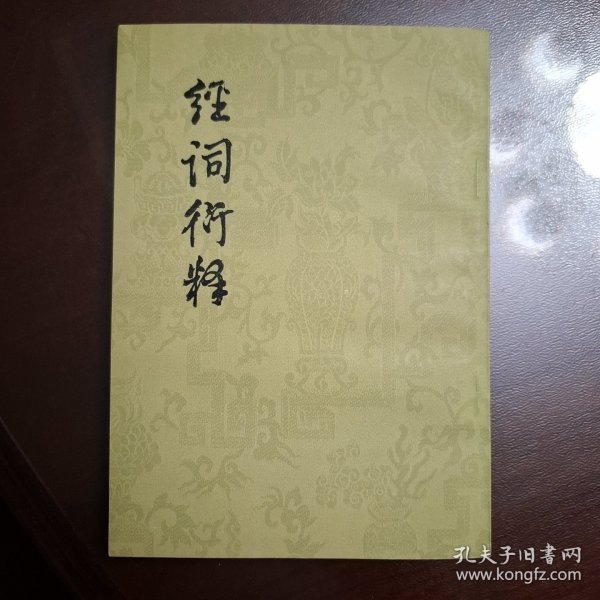 經词衍释
孔夫子旧書网
www.kongfz.com